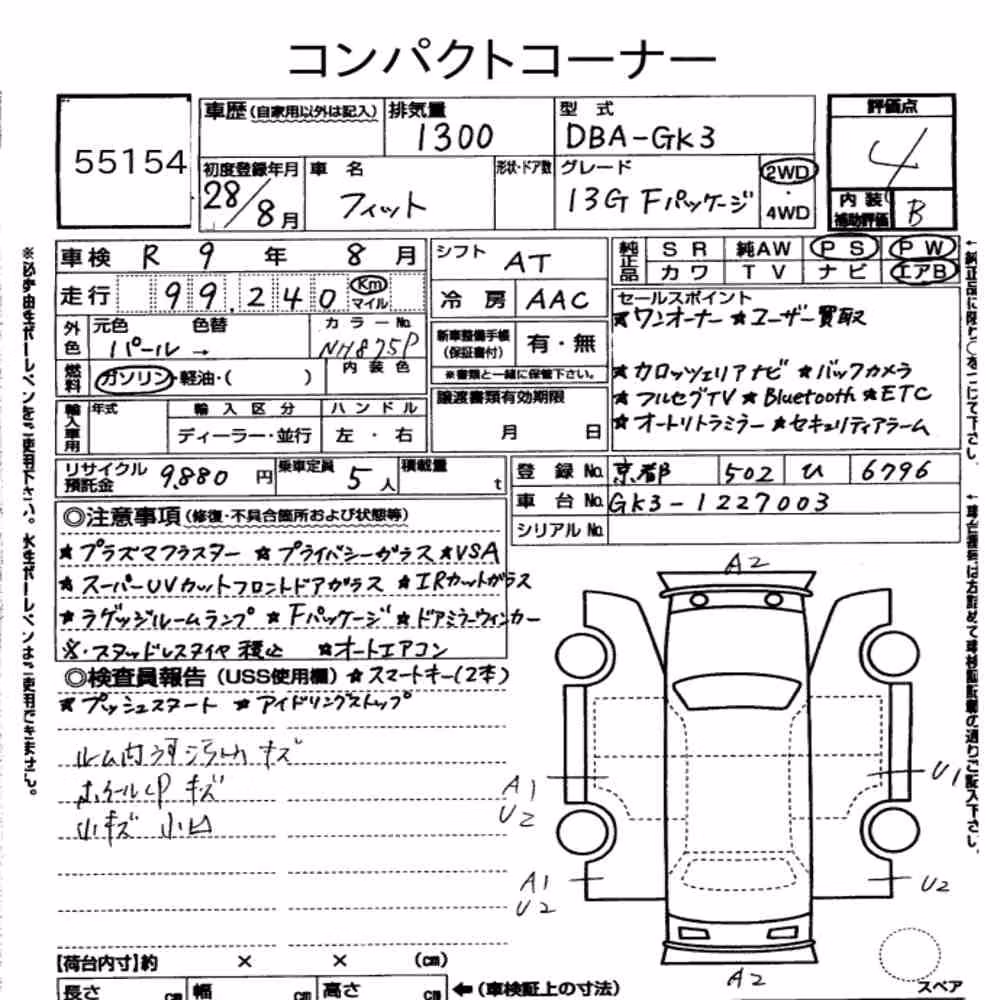 コンパクトコーナー
55154
車歴 (自家用以外は記入)
排気量
1300
型式
DBA-GK3
評価点
4
初度登録年月
28/8月
車名
フィット
形状・ドア数
グレード
13G Fパッケージ
2WD
・
4WD
内装
補助評価
B
車検 R 9 年 8 月
シフト
AT
純正品
SR 純AW PS PW
カワ TV ナビ エアB
走行 99.240 Km
マイル
冷房 AAC
セールスポイント
★ワンオーナー ★ユーザー買取
外色
元色 色替
パール →
カラーNo.
NH875P
新車整備手帳
(保証書付)
有・無
※書類と一緒に保管下さい。
燃料
ガソリン・軽油・( )
内装色
★カロッツェリアナビ ★バックカメラ
★フルセグTV ★Bluetooth ★ETC
★オートリトラミラー ★セキュリティアラーム
輸入車用
年式
輸入区分
ディーラー・並行
ハンドル
左・右
譲渡書類有効期限
月 日
リサイクル
預託金
9,880 円
乗車定員
5 人
積載量
t
登録No. 京都 502 ひ 6796
車台No. GK3-1227003
シリアルNo.
◎注意事項 (修復・不具合箇所および状態等)
★プラズマクラスター ★プライバシーガラス ★VSA
★スーパーUVカットフロントドアガラス ★IRカットガラス
★ラゲッジルームランプ ★Fパッケージ ★ドアミラーウィンカー
※・スタッドレスタイヤ積込 ★オートエアコン
◎検査員報告 (USS使用欄) ★スマートキー(2本)
★プッシュスタート ★アイドリングストップ
キズ
キズ
小キズ 小凹
A2
A1
U2
U1
A1
U2
U2
A2
スペア
【荷台内寸】約 × × (cm)
長さ cm 幅 cm 高さ cm
←(車検証上の寸法)
※必ず油性ボールペンをご使用下さい。水性ボールペンはご使用できません。
←純正品に限り○をつけて下さい。
←車台番号は左詰めで車検証記載の通りご記入下さい。